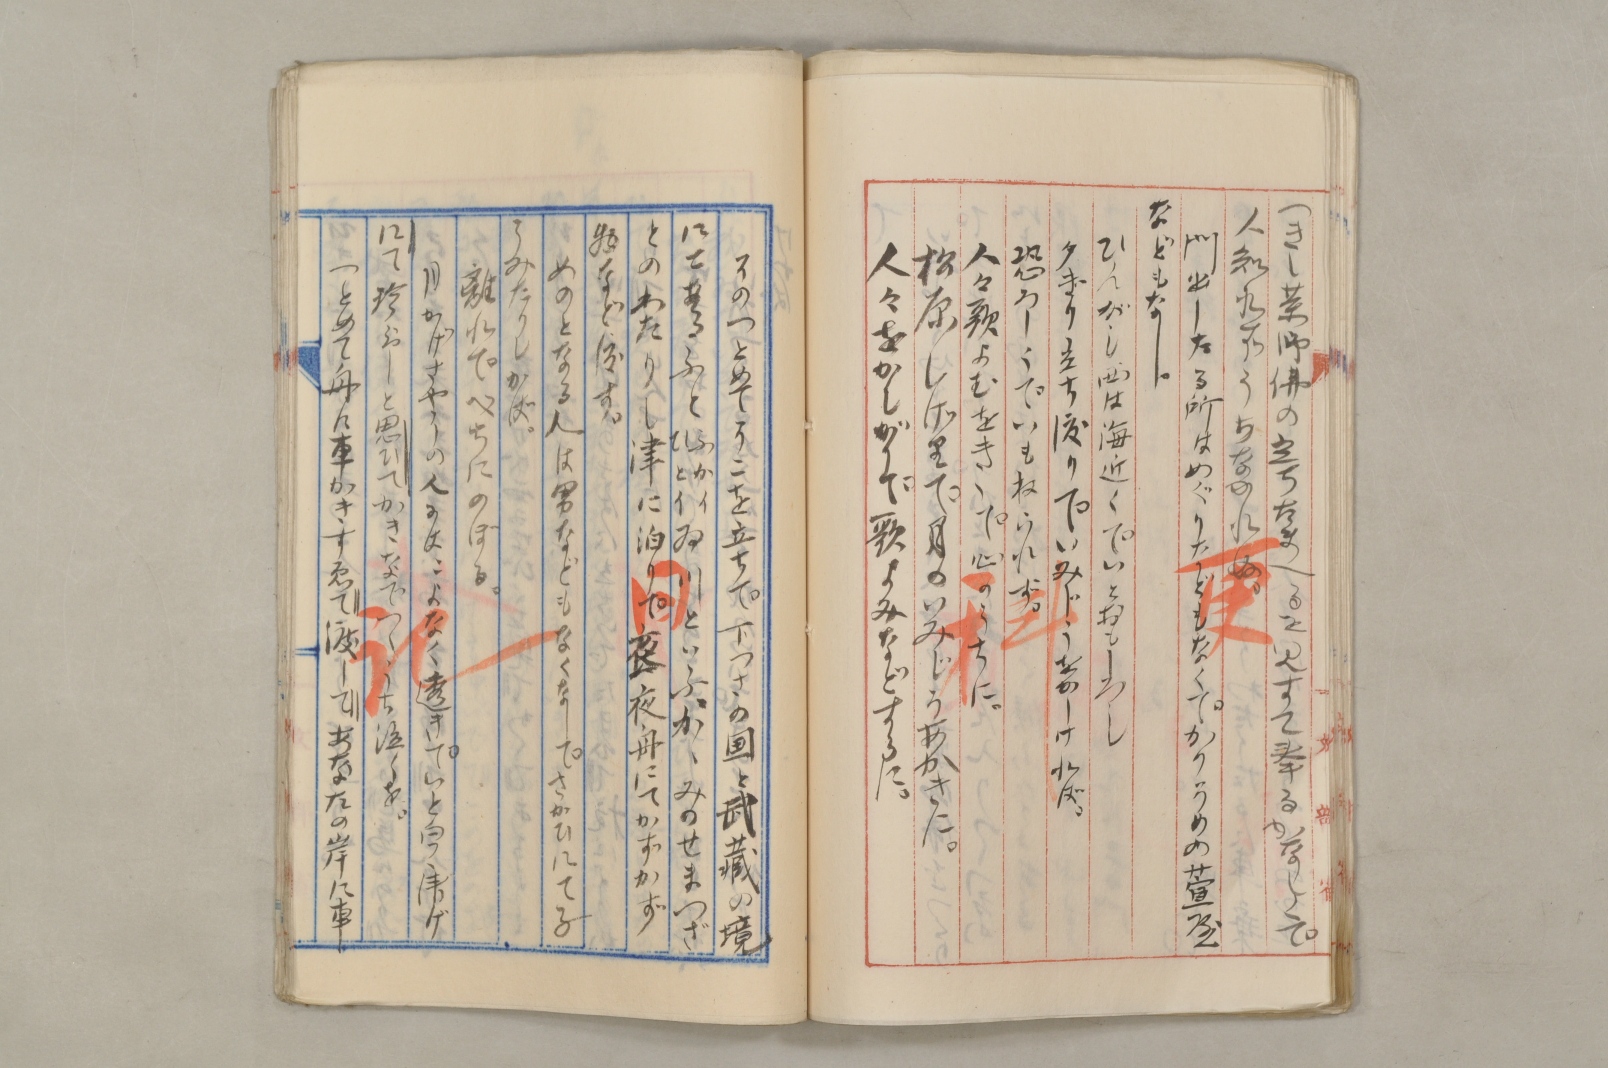 つきし薬師佛の立ちたまへるを見すて奉るかなしくて。
人知れずうちなかれぬ。
門出したる所はめぐりなどもなくて。かりそめの萱屋
などもなし。
ひんがし西は海近くていとおもしろし
夕ぎり立ち渡りて。いみじうをかしければ。
恐ろしうていもねられず。
人々歌よむをきゝて。心のうちに。
松原しげりて。月のいみじうあかきに。
人々をかしがりて。歌よみなどするに。
更科
文部省
そのつとめてそこを立ちて。下つさの国と武蔵の境
にてあるふとゐ川といふ。かゞみのせまつざ
とのわたりし津に泊りて。夜夜舟にてかずかず
物など渡す。
めのとなる人は男などもなくなして。さかひにて子
うみたりしかば。
離れてべちにのぼる。
月かげさやうの人にはこよなく透きて。いと白う清げ
にて珍らしと思ひてかきなでつゝうち泣くを。
つとめて舟に車かきすゑて渡してあなたの岸に車
日記